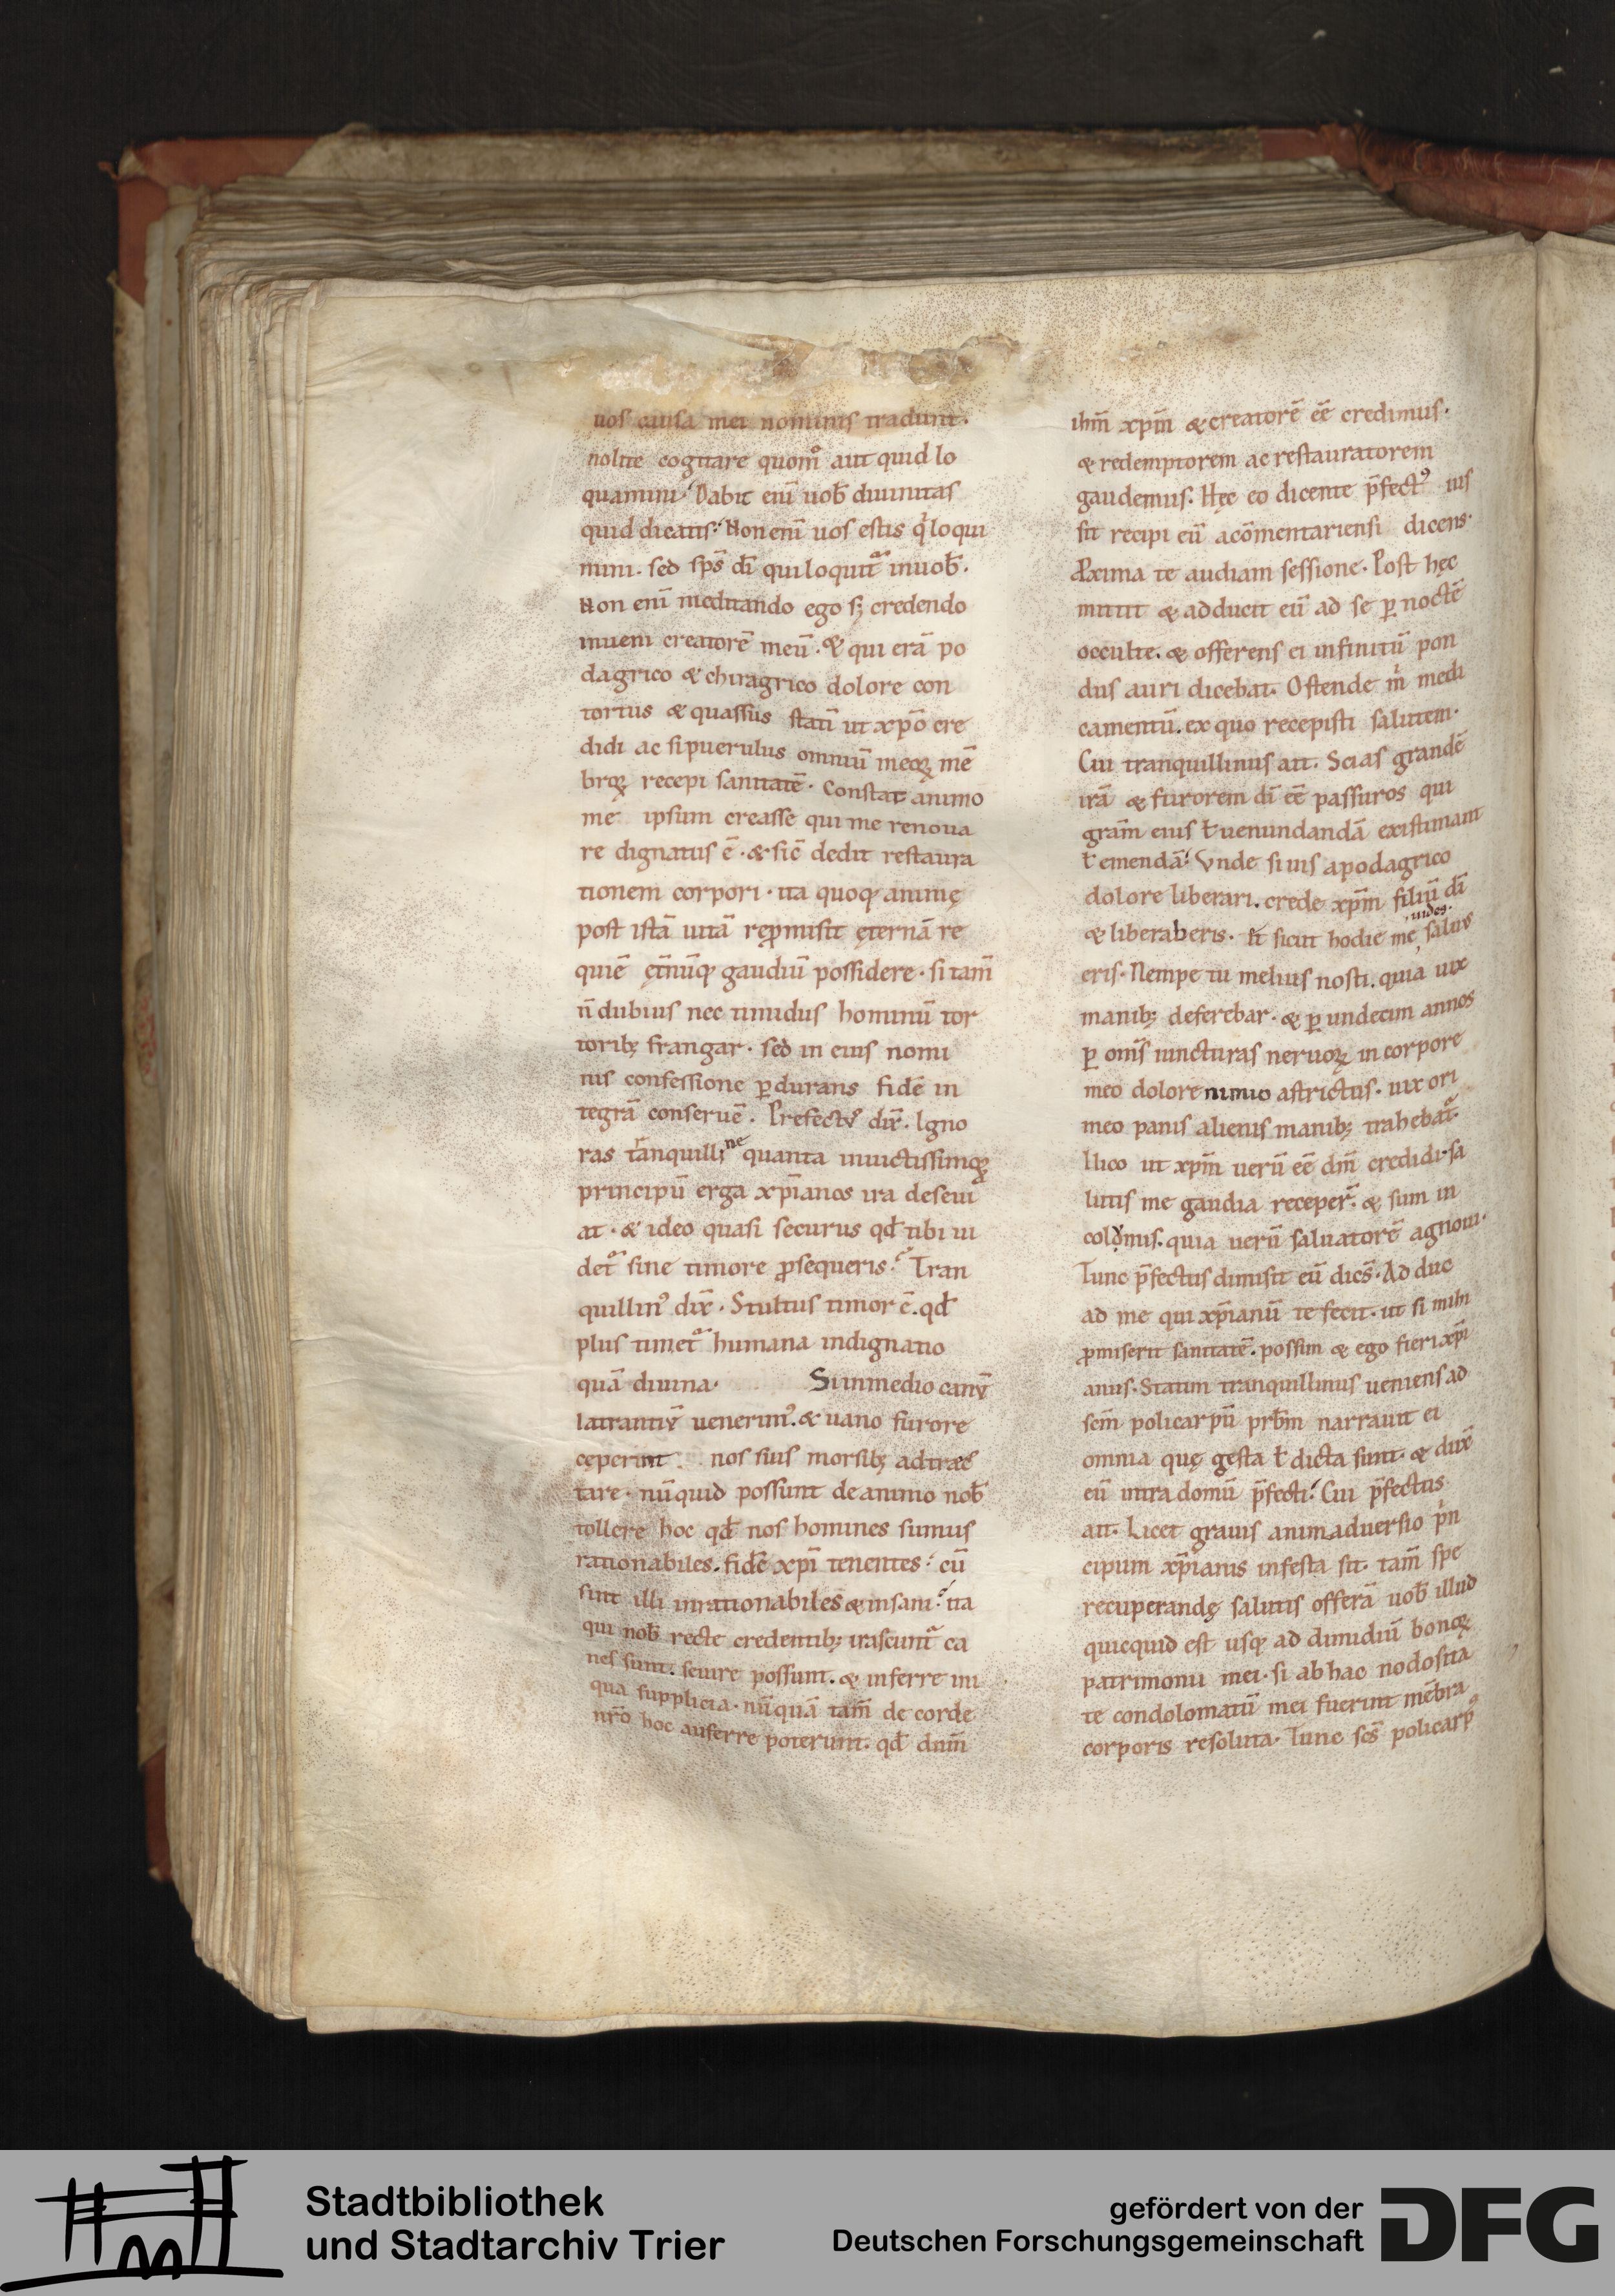 uos causa mei nominis tradunt.
nolite cogitare quom̊ aut quid lo
quamini. Dabit eni̅ uob̅ diuinitas
quid dicatis: Non eni̅ uos estis q̇ loqui
mini. sed sp̅s di̅ qui loquit᷑ in uob̅.
Non eni̅ meditando ego sꝫ credendo
inueni creatore̅ meu̅. & qui era̅ po
dagrico & chiragrico dolore con
tortus & quassus stati̅ ut xp̅o cre
didi ac si puerulus omniu̅ meoꝝ me̅
broꝝ recepi sanitate̅. Constat animo
me ipsum creasse qui me renoua
re dignatus e̅. & sic̅ dedit restaura
tionem corpori. ita quoq; animę
post ista̅ uita̅ rep̱misit ęterna̅ re
quie̅ ęt̅nu̅q; gaudiu̅ possidere. si tam̅
n̅ dubius nec timidus hominu̅ tor
torib; frangar. sed in eius nomi
nis confessione ꝑdurans fide̅ in
tegra̅ conserue̅. Prefectꝰ dix̅. Igno
ras tranquilline quanta inuictissimoꝝ
principu̅ erga xp̅ianos ira deseui
at. & ideo quasi securus qd̅ tibi ui
det᷑ sine timore ꝓsequeris. Tran
quillinꝰ dix̅. Stultus timor e̅. qd̅
plus timet᷑ humana indignatio
qua̅ diuina. Si in medio canu̅
latrantiu̅ uenerimꝰ. & uano furore
ceperint nos suis morsib; adtrac
tare. nu̅quid possunt de animo nob̅
tollere hoc qd̅ nos homines sumus
rationabiles. fide̅ xp̅i tenentes: cu̅
sint illi inrationabiles & insani: ita
qui nob̅ recte credentib; irascunt᷑ ca
nes sunt. seuire possunt. & inferre ini
qua supplicia. nu̅qua̅ tam̅ de corde
nr̅o hoc auferre poterunt. qd̅ dnm̅
ihm̅ xpm̅ & creatore̅ ee̅ credimus.
& redemptorem ac restauratorem
gaudemus. Hęc eo dicente p̅fectꝰ ius
sit recipi eu̅ a co̅mentariensi dicens.
Ꝓxima te audiam sessione. Post hęc
mittit & adducit eu̅ ad se ꝑ nocte̅
occulte. & offerens ei infinitu̅ pon
dus auri dicebat. Ostende m̍ medi
camentu̅. ex quo recepisti salutem.
Cui tranquillinus ait. Scias grande̅
ira̅ & furorem di̅ ee̅ passuros qui
gram̅ eius ł uenundanda̅ existimant
ł emenda̅. Vnde si uis a podagrico
dolore liberari. crede xpm̅ filiu̅ di̅
& liberaberis. Et sicut hodie me uides. saluus
eris. Nempe tu melius nosti. quia uix
manib; deferebar. & ꝑ undecim annos
ꝑ om̅s iuncturas neruoꝝ in corpore
meo dolore nimio astrictus. uix ori
meo panis alienis manib; trahebat᷑.
Ilico ut xpm̅ ueru̅ ee̅ dm̅ credidi. sa
lutis me gaudia receper̅. & sum in
colomis. quia ueru̅ saluatore̅ agnoui.
Tunc p̅fectus dimisit eu̅ dice̅s. Adduc
ad me qui xp̅ianu̅ te fecit. ut si mihi
ꝓmiserit sanitate̅. possim & ego fieri xp̅i
anus. Statim tranquillinus ueniens ad
scm̅ policarpu̅ prb̅m narrauit ei
omnia quę gesta ł dicta sunt. & duxit
eu̅ intra domu̅ p̅fecti. Cui p̅fectus
ait. Licet grauis animaduersio pi̍n
cipum xp̅ianis infesta sit. tam̅ spe
recuperandę salutis offera̅ uob̅ illud
quicquid est usq; ad dimidiu̅ bonoꝝ
patrimonii mei. si ab hac nodosita
te condolomatu̅ mei fuerint me̅bra
corporis resoluta. Tunc sc̅s policarpꝰ
Stadtbibliothek
und Stadtarchiv Trier
gefördert von der
Deutschen Forschungsgemeinschaft
DFG